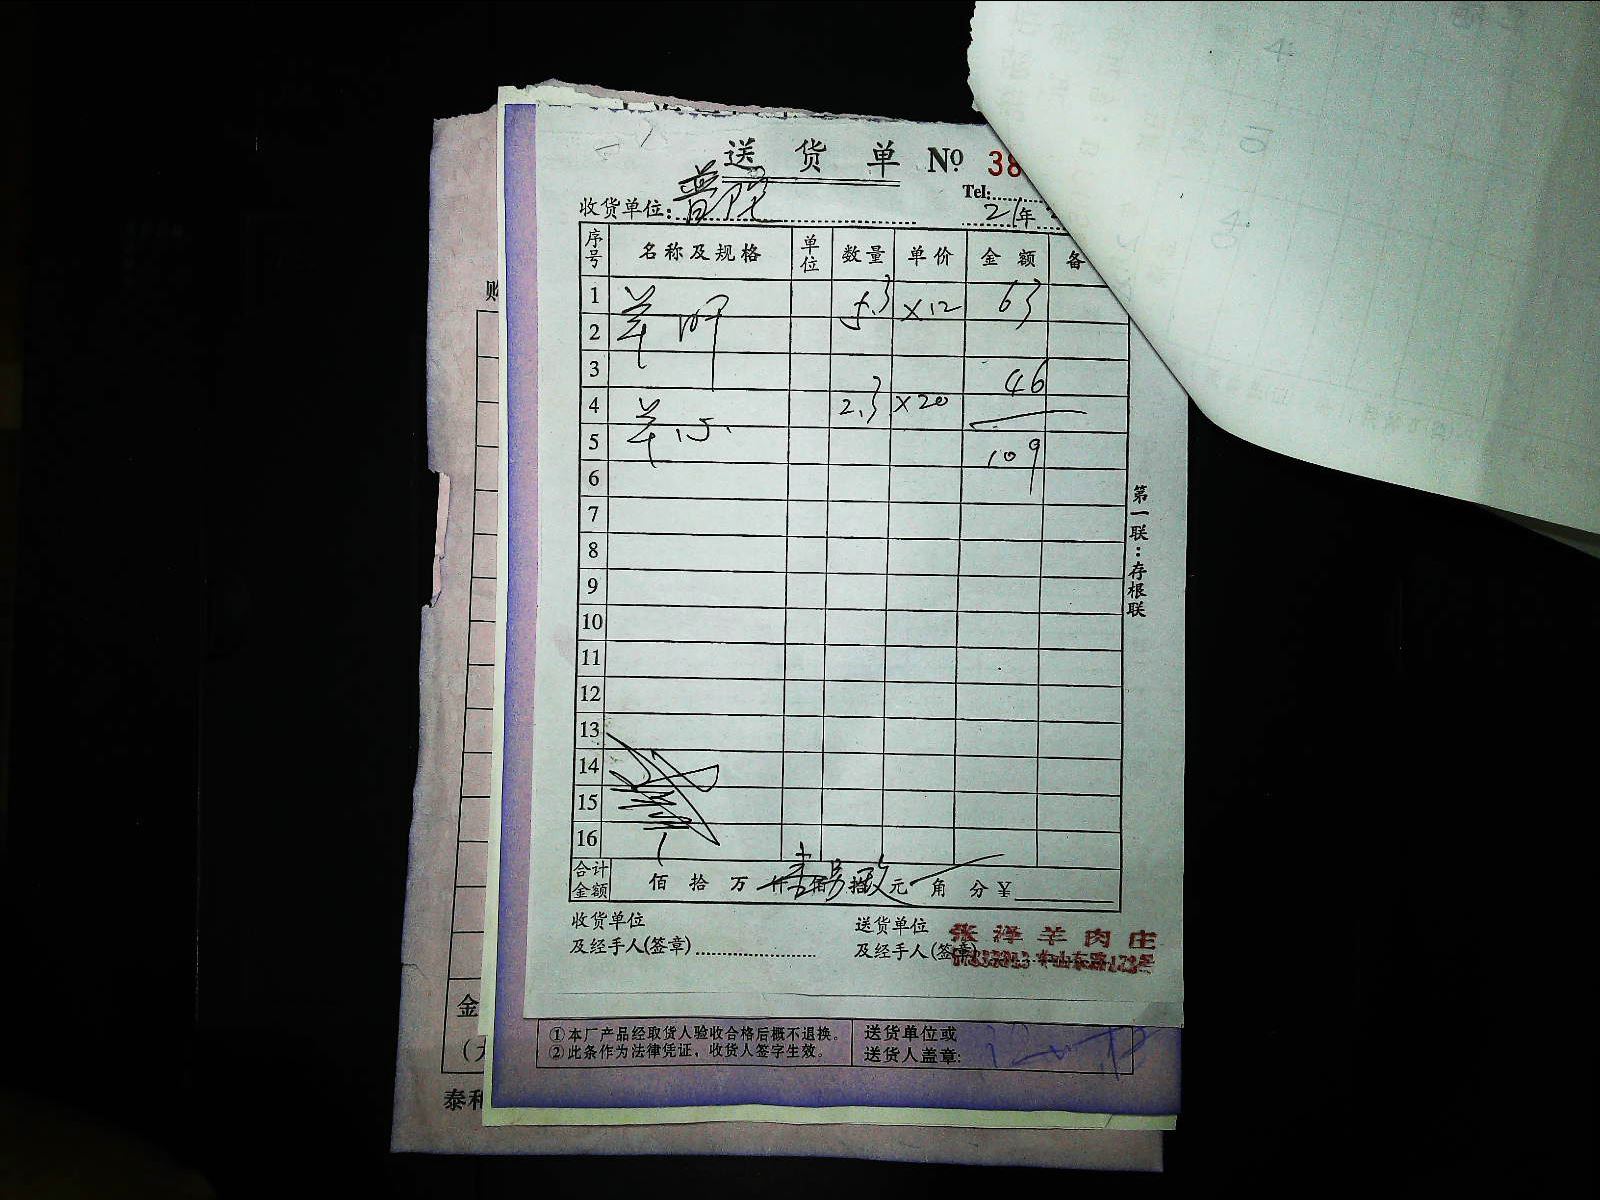 送货单 № 38
Tel:
收货单位: 普陀
21年
序号 名称及规格 单位 数量 单价 金额 备
1 羊肝 5.3 ×12 63
2
3 46
4 羊心 2.3 ×20
5 109
6
7
8
9
10
11
12
13
14
15
16
合计金额 佰 拾 万 仟 壹佰 另 拾 玖元 角 分 ¥
收货单位
及经手人(签章)
送货单位
及经手人(签章)
张泽羊肉庄
第一联:存根联
①本厂产品经取货人验收合格后概不退换。
②此条作为法律凭证，收货人签字生效。
送货单位或
送货人盖章:
购
金
泰和